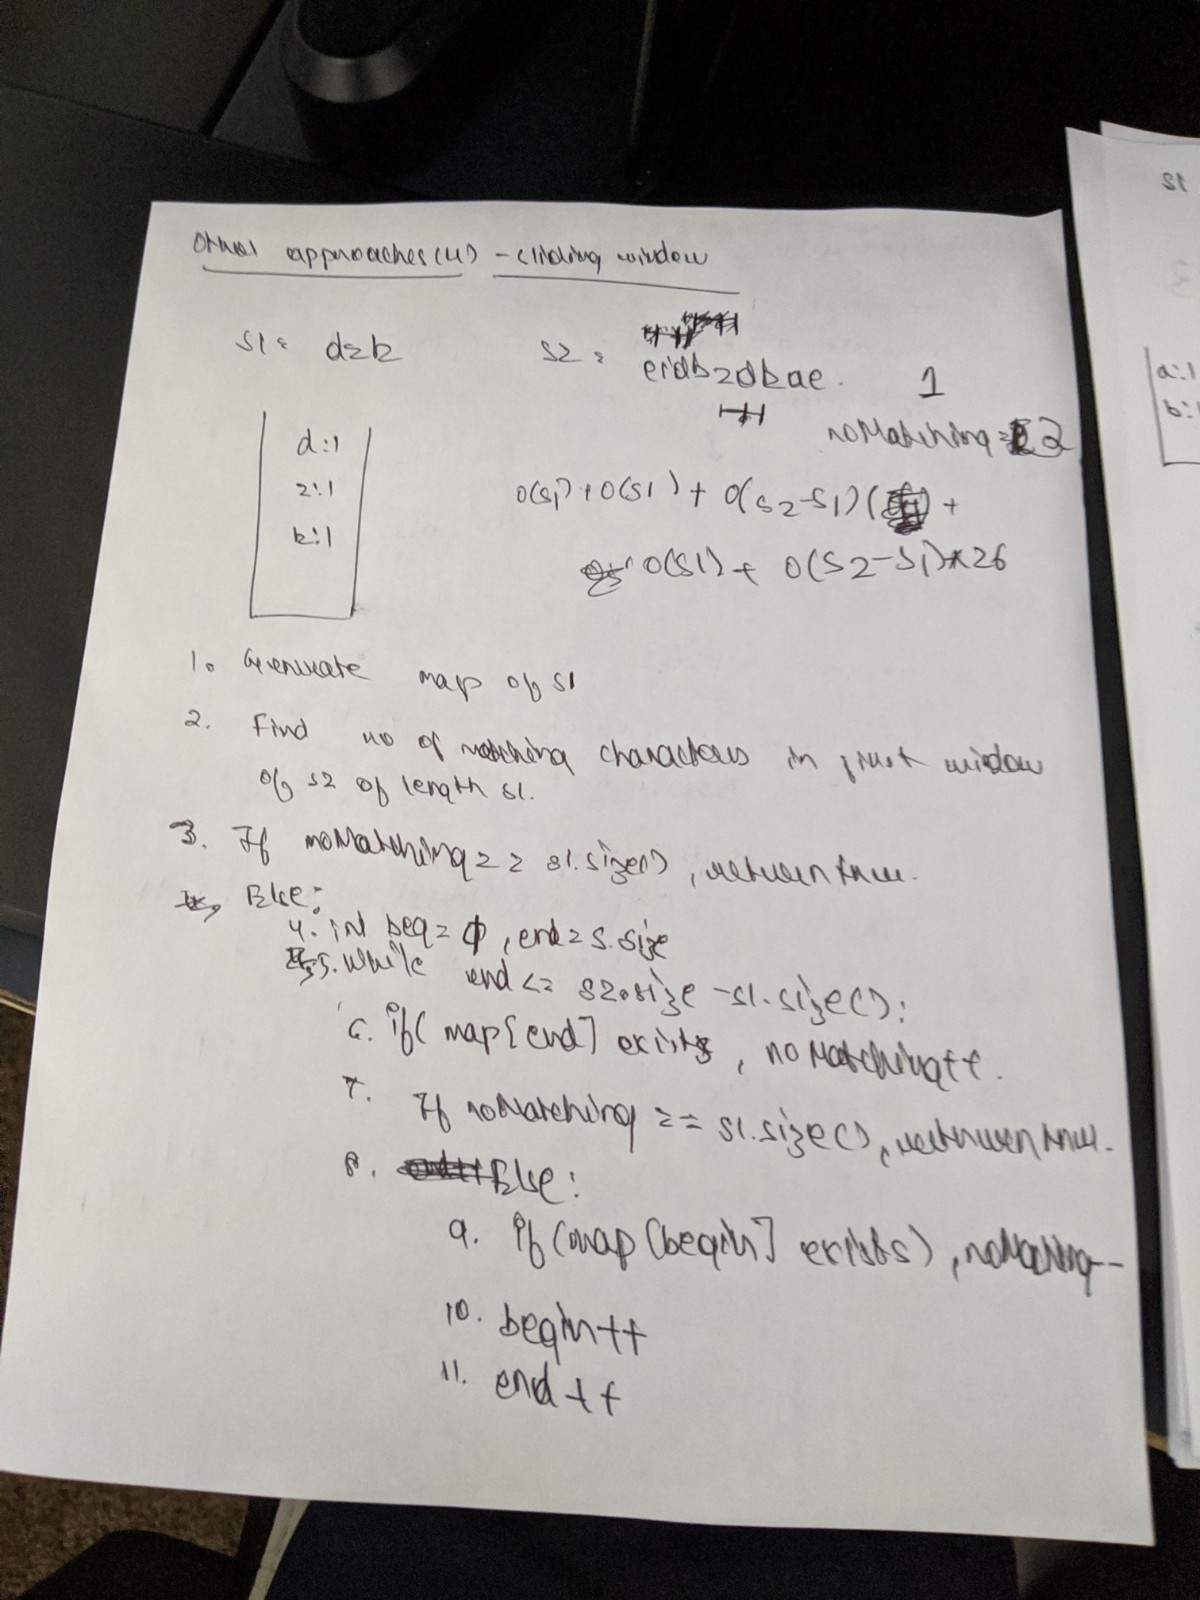 Other approaches (4) - sliding window
S1: dzb
S2: eidbzdbae.
1
noMatching = 2
d:1
z:1
b:1
O(S1) + O(S1) + O(S2-S1) ( ) +
O(S1) + O(S2-S1)*26
1. Generate map of S1
2. Find no of matching characters in first window
of S2 of length S1.
3. If noMatching == S1.size(), return true.
Else:
4. int beg = 0, end = S.size
5. while end <= S2.size - S1.size():
6. if( map[end] exists, noMatching++.
7. If noMatching == S1.size(), return true.
8. Else:
9. if (map[begin] exists), noMatching--
10. begin++
11. end++
12
a:1
b: